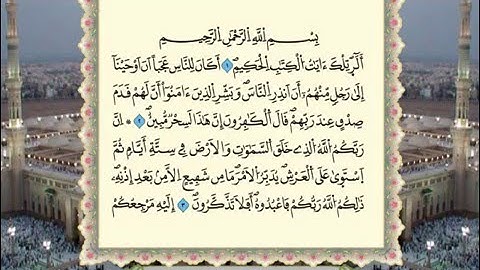 بِسْمِ اللَّهِ الرَّحْمَٰنِ الرَّحِيمِ
أَلَٓر تِلْكَ ءَايَٰتُ الْكِتَٰبِ الْحَكِيمِ ١ أَكَانَ لِلنَّاسِ عَجَباً اَنَ اَوْحَيْنَآ
إِلَىٰ رَجُلٍ مِّنْهُمُۥٓ أَنَ اَنذِرِ النَّاسَ وَبَشِّرِ الذِينَ ءَامَنُوٓاْ أَنَّ لَهُمْ قَدَمَ
صِدْقٍ عِندَ رَبِّهِمْ قَالَ الْكَٰفِرُونَ إِنَّ هَٰذَا لَسِحْرٌ مُّبِينٌ ٢ إِنَّ
رَبَّكُمُ اللَّهُ الذِے خَلَقَ السَّمَٰوَٰتِ وَالَارْضَ فِے سِتَّةِ أَيَّامٍ ثُمَّ
اَسْتَوَىٰ عَلَى الْعَرْشِ يُدَبِّرُ الَامْرَ مَا مِن شَفِيعٍ اِلَّا مِنۢ بَعْدِ إِذْنِهِۦ
ذَٰلِكُمُ اللَّهُ رَبُّكُمْ فَاعْبُدُوهُ أَفَلَا تَذَّكَّرُونَ ٣ إِلَيْهِ مَرْجِعُكُمْ